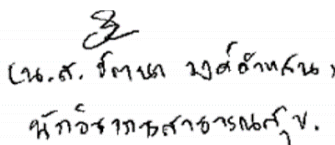 (น.ส. รัตนา วงศ์คำแสน)
นักวิชาการสาธารณสุข.